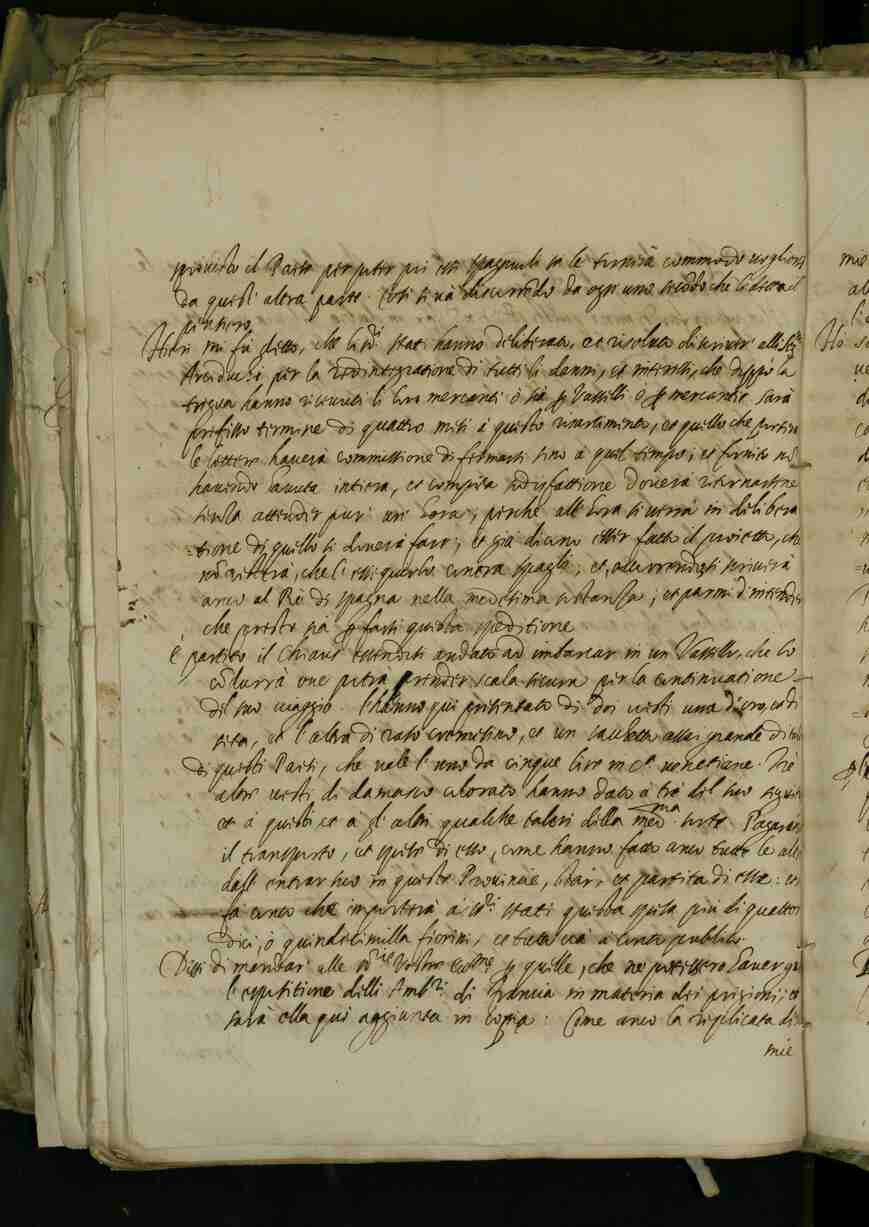 il Passo per poter poi essi Spagnuoli se le tornirà commodo
da quest' altra parte. Così si và discorrendo da ogn' uno secondo che li detta il
pensiero.
Hieri mi fù detto, che li Sri Stati hanno deliberato, et risoluto di scriver' alli Srmi
Arciduchi per la redintegratione di tutti li danni, et interessi, che doppò la
tregua hanno ricevuti li loro mercanti ò sia per Vasselli ò per mercantie sarà
prefisso termine di quattro mesi à questo risarcimento, et quello che porterà
le lettere haverà commissione di fermarsi sino à quel tempo; et fornito nõ
havendo havuta intiera, et compita sodisfattione doverà ritornarsene
senza attender pur un' hora; perche all' hora si venirà in delibera
=tione di quello si doverà fare; et già dicono esser fatto il proietto, che
nõ resterà, che questo ancora Spagli; et scriverà
anco al Rè di Spagna nella medesima sostanza; et parmi d' intender
che presto sia per farsi questa speditione
È partito il Chiaus essendosi andato ad imbarcar in un Vassello, che lo
cõdurrà ove potrà prender scala sicura per la continuatione
del suo viaggio. L' hanno qui presentato di doi vesti una d' oro, et di
seta, et l' altra di raso cremesino, et un assai grande di
di questi Paesi, che vale l' uno da cinque lire in ca. venetiane. Trè
altre vesti di damasco colorato hanno dato à trè del suo
et à questi et à gl' altri qualche taleri della medma sorte. Pagano
il trasporto, et spese di esso, come hanno fatto anco tutte le altre
dall' entrar suo in queste Provincie, star, et partita di esse: et
fà conto che importerà à Sri Stati questa spesa più di quattor
dici, ò quindesimilla fiorini, et tutto và à conto publico.
Dissi di mandar' alle Srie Vostre Eccme per quelle, che ne potessero haver
l' espositione delli Ambri di Francia in materia dei prigioni; et
sarà ella qui aggiunta in copia: Come anco la replicata di
mie